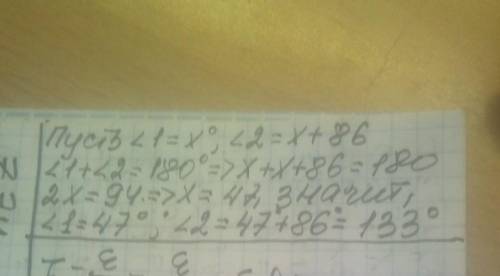 Пусть ∠1=x°, ∠2=x+86
∠1+∠2=180°=>x+x+86=180
2x=94.=>x=47, значит,
∠1=47°; ∠2=47°+86°=133°